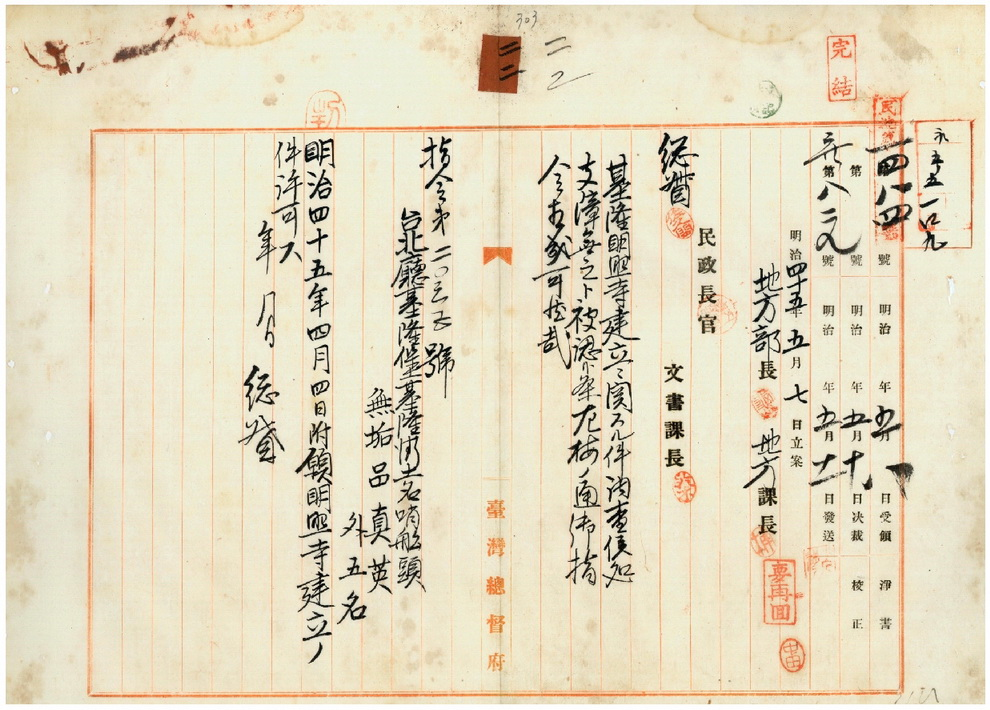 303
二二
二二
完結
永五五一〇九
一四八四
號 明治 年五月 日受領 淨書
第 號 明治 年五月十日決裁 校正
第八 號 明治 年五月十一日發送
明治四十五年五月七日立案
地方部長 地方課長
要再回
民政長官
文書課長
総督
基隆明照寺建立ニ関スル件調査候処
支障無之ト被認候條左按ノ通御指
令相成可然哉
臺灣總督府
指令第二〇三五號
台北廳基隆堡基隆街土名哨船頭
無垢品真英
外五名
明治四十五年四月四日附願明照寺建立ノ
件許可ス
年 月 日 総督